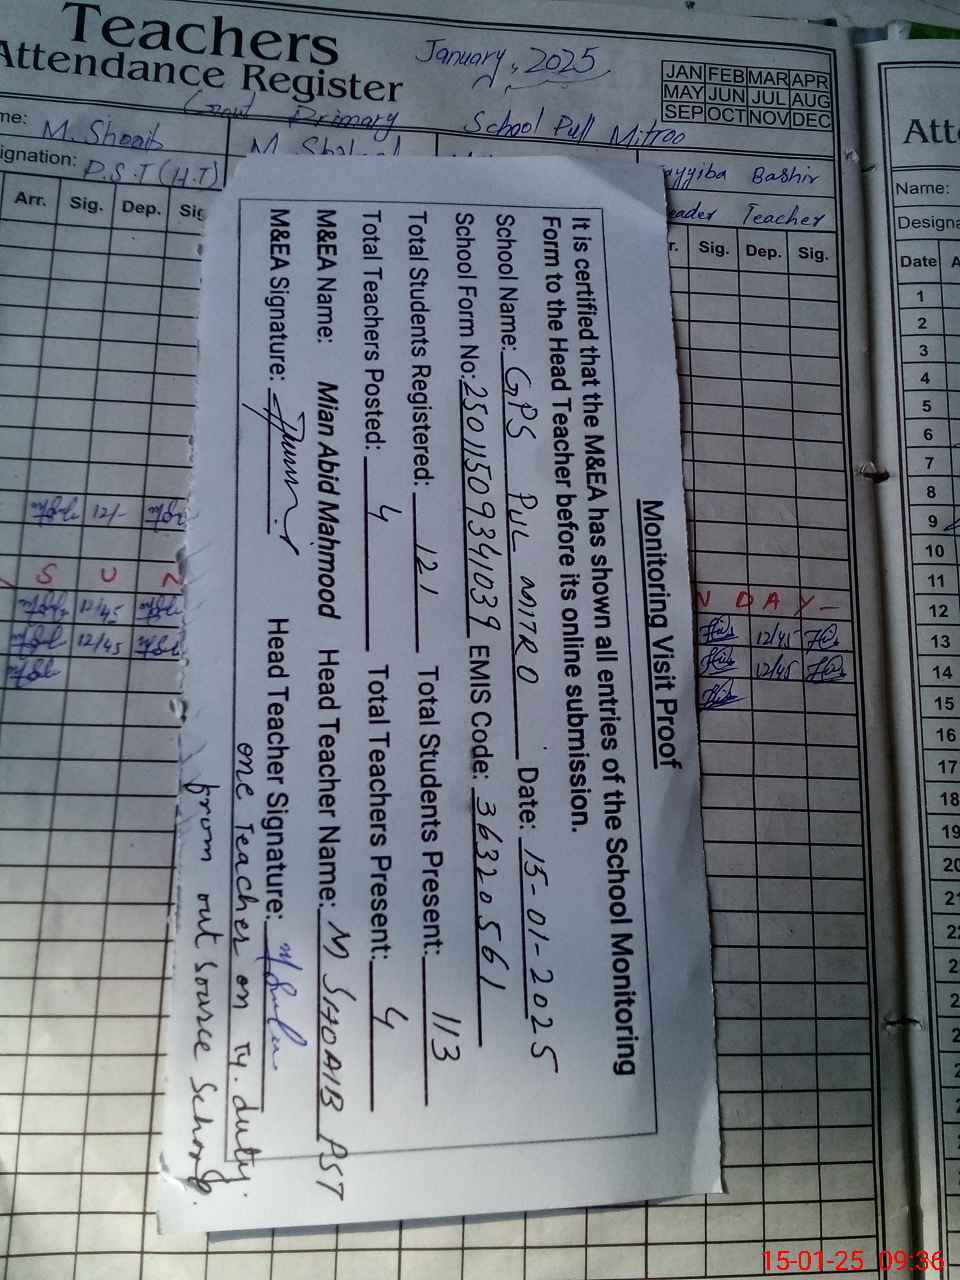 Teachers
Attendance Register
January, 2025
JAN FEB MAR APR
MAY JUN JUL AUG
SEP OCT NOV DEC
Govt Primary School Pull Mitroo
me: M. Shoaib
ignation: P.S.T (H.T)
ayyiba Bashir
eader Teacher
Arr. Sig. Dep. Sig
r. Sig. Dep. Sig.
Atte
Name:
Designa
Date A
1
2
3
4
5
6
7
8
9
10
11
12
13
14
15
16
17
18
19
20
S U N
N D A Y -
12/-
12/45
12/45
12/45
12/45
Monitoring Visit Proof
It is certified that the M&EA has shown all entries of the School Monitoring
Form to the Head Teacher before its online submission.
School Name: GPS PUL MITRO Date: 15-01-2025
School Form No: 25011509341039 EMIS Code: 36320561
Total Students Registered: 121 Total Students Present: 113
Total Teachers Posted: 4 Total Teachers Present: 4
M&EA Name: Mian Abid Mahmood Head Teacher Name: M SHOAIB PST
M&EA Signature: Head Teacher Signature:
one Teacher on Ty. duty.
from out source School.
15-01-25 09:36